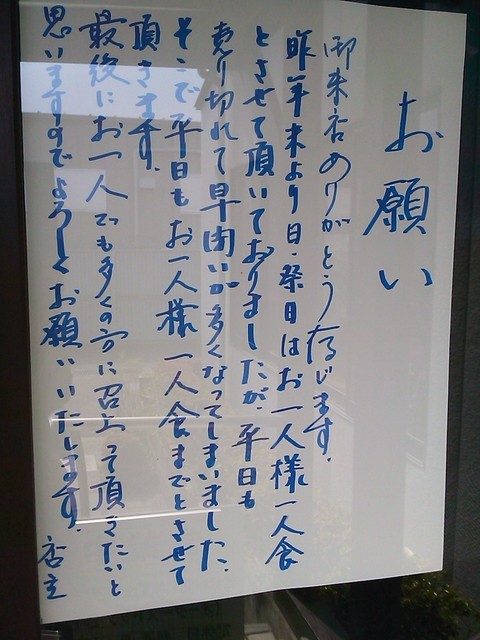 お願い
御来店ありがとう存じます。
昨年末より日・祭日はお一人様一人食
とさせて頂いておりましたが、平日も
売り切れて早閉いが多くなってしまいました。
そこで平日もお一人様一人食までとさせて
頂きます。
最後にお一人でも多くの方に召上って頂きたいと
思いますのでよろしくお願いいたします。店主